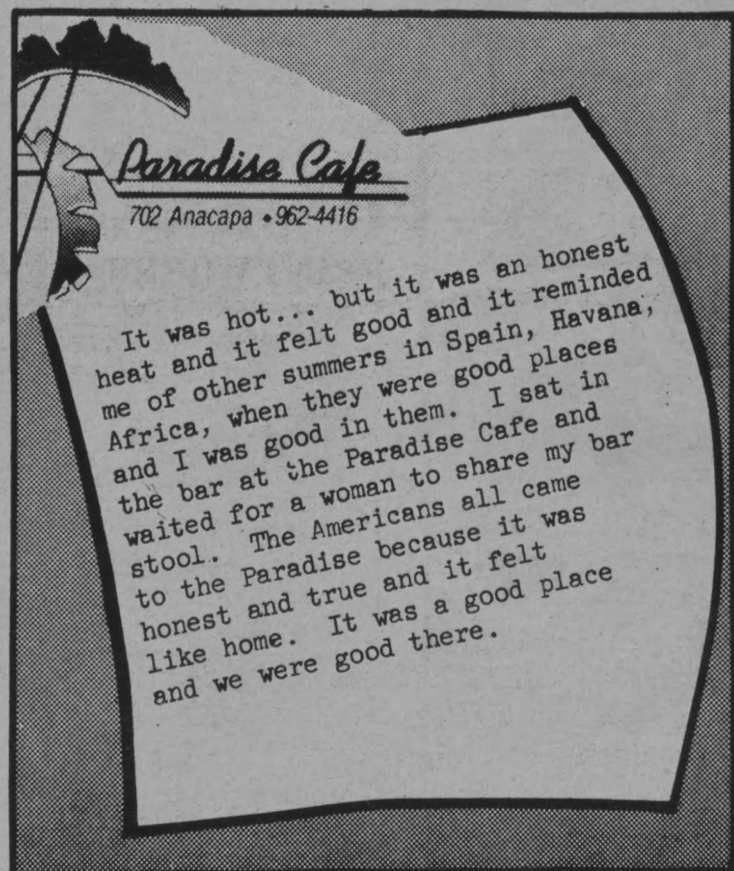 Paradise Cafe
702 Anacapa • 962-4416
It was hot... but it was an honest
heat and it felt good and it reminded
me of other summers in Spain, Havana,
Africa, when they were good places
and I was good in them. I sat in
the bar at the Paradise Cafe and
waited for a woman to share my bar
stool. The Americans all came
to the Paradise because it was
honest and true and it felt
like home. It was a good place
and we were good there.